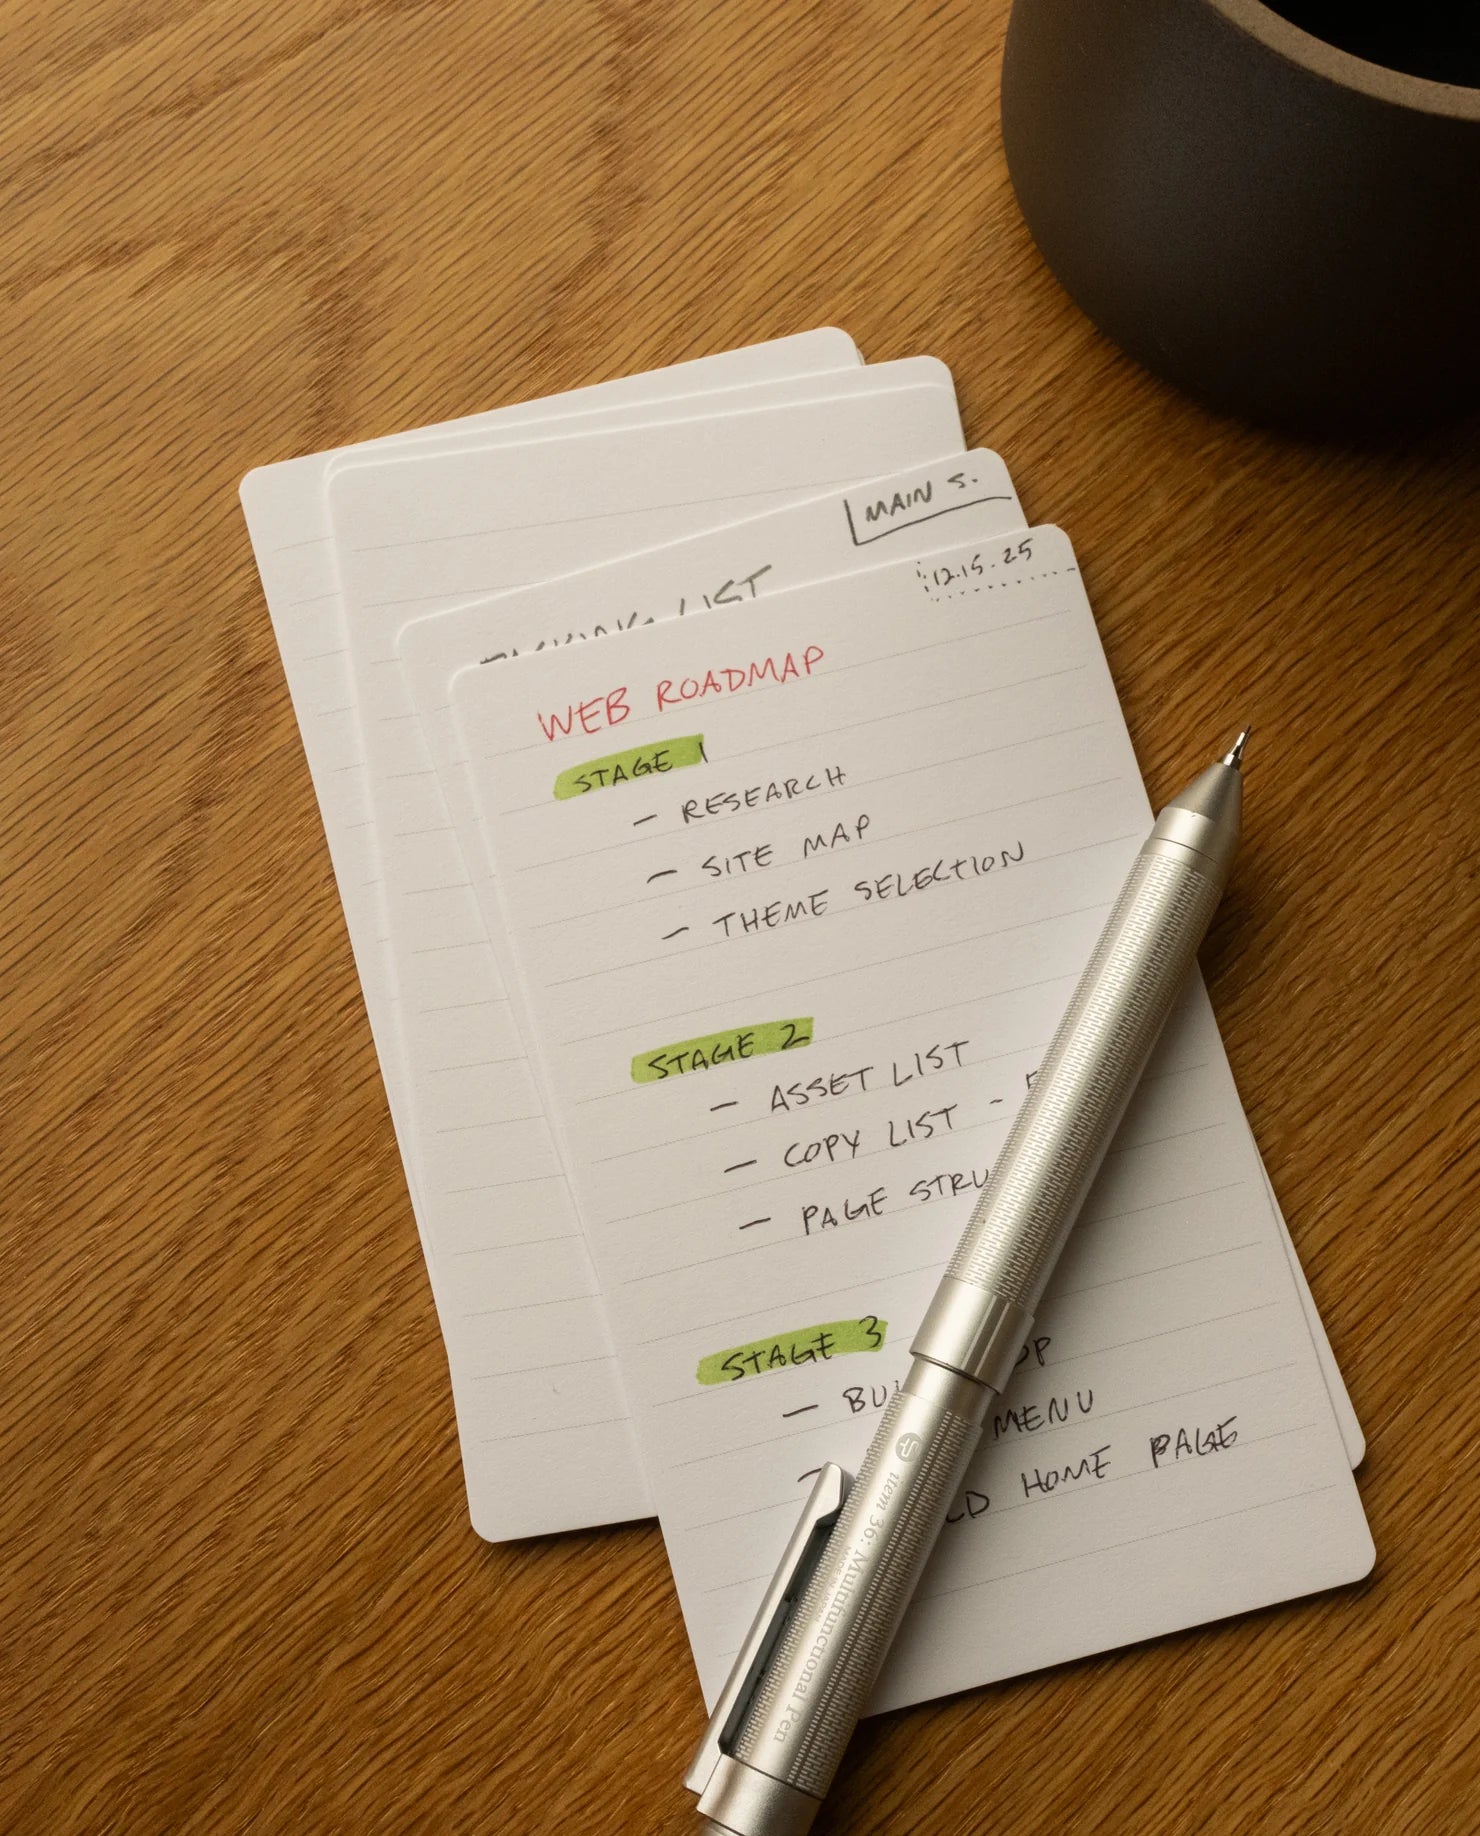 MAIN S.
LIST
12.15.25
WEB ROADMAP
STAGE 1
- RESEARCH
- SITE MAP
- THEME SELECTION
STAGE 2
- ASSET LIST
- COPY LIST -
- PAGE STRU
STAGE 3
- BU
- MENU
HOME PAGE
item 36: Multifunctional Pen
MADE IN JAPAN